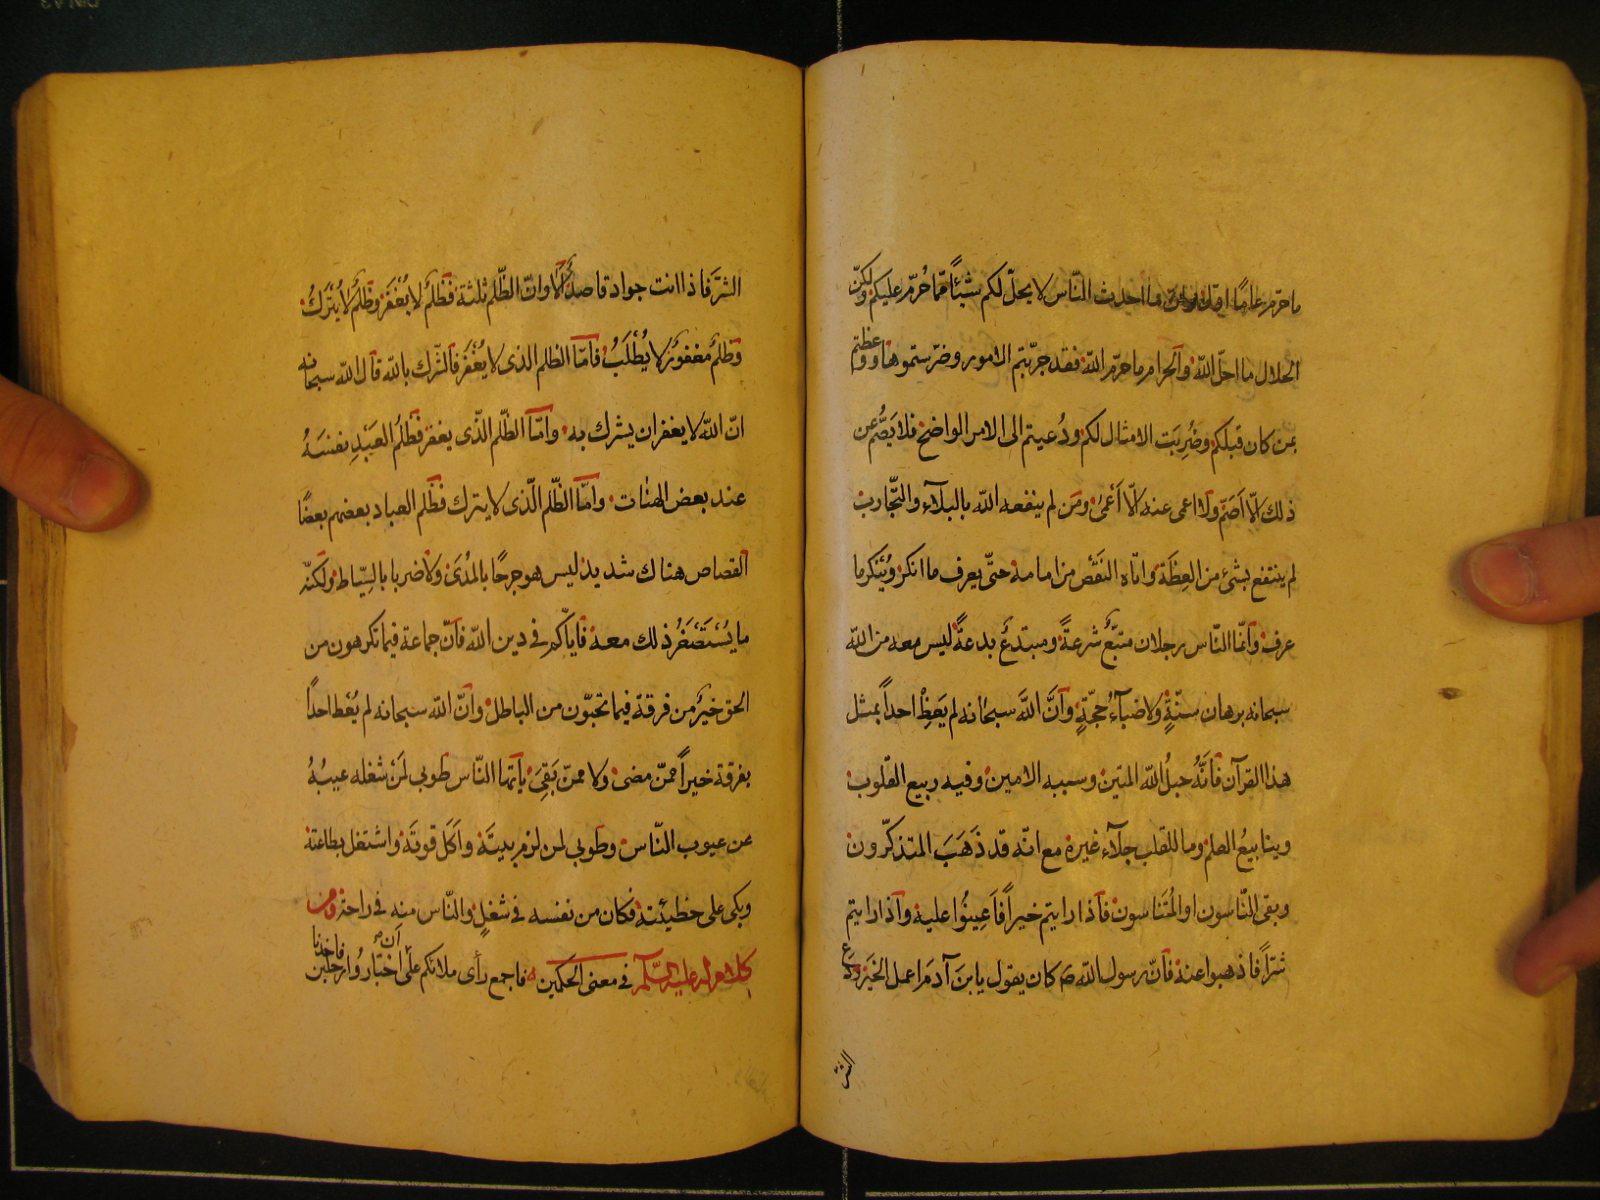 ما حرّم عامًا اوّل وانّ ما احدث النّاس لا يحلّ لكم شيئًا ممّا حُرّم عليكم ولكنّ
الحلال ما احلّ اللّه والحرام ما حرّم اللّه فقد جرّبتم الامور وضرّستموها ووعظتم
بمن كان قبلكم وضُرِبَت الامثال لكم ودُعيتم الى الامر الواضح فلا يَصَمُّ عن
ذلك الّا اَصَمّ ولا اعمى عنه الّا اَعْمىٰ ومَن لم ينفعه اللّه بالبلآء والتّجارب
لم ينتفع بشئ من العِظَة واتاه النَقْص من امامه حتّى يعرف ما انكر ويُنكر ما
عرف وانّما النّاس رجلان متبّعٌ شرعةً ومبتدعٌ بدعةً ليس معه من اللّه
سبحانه برهان سنّةٍ ولا ضيآءُ حجّةٍ وانَّ اللَّه سبحٰانه لم يَعِظْ احداً بمثل
هذا القرآن فانَّهُ حبلُ اللّه المتين وسببه الامين وفيه ربيع القلوب
وينابيعُ العلم وما للقلب جلآء غيره مع انّه قد ذَهَبَ المتذكّرون
وبقى النّاسون او المُتَناسون فاذا رايتم خيراً فاَعِينُوا عليه واذا رايتم
شرّاً فاذهبوا عنه فانّ رسول اللّه ص كان يقول يا بنَ آدمَ اعمل الخيَر ودع
الشرّ
الشرَّ فاذا انت جواد قاصدٌ اَلا وانّ الظّلم ثلثة فظلمٌ لا يُغْفَرُ وظُلمٌ لا يُتْرَكُ
وظلمٌ مغفورٌ لا يُطْلَبُ فامّا الظلم الذى لا يُغْفَرُ فالشّرك باللّه قال اللّه سبحانه
انّ اللّه لا يغفر ان يشرك به وامّا الظّلم الذّى يغفر فظلمُ العبَدِ نفسَهُ
عند بعض الهنات وامّا الظّلم الّذى لا يترك فظلم العباد بعضهم بعضًا
القصاص هناك شديد ليس هو جرحًا بالمُدَىٰ ولا ضربا بالسِّياط ولكنّه
ما يُسْتَصْغَرُ ذلك معه فايّاكم فى دين اللّه فانّ جماعة فيما تكرهون من
الحق خيرٌ من فرقة فيما تحبّون من الباطل وانّ اللّه سبحانه لم يُعْط احداً
بفرقة خيراً ممّن مضىٰ ولا ممّن بَقِىَ يا اَيّها النّاس طوبى لَمنْ شغله عيبُهُ
عن عيوب النّاس وطوبى لمن لزم بيتَه واَكَل قوتَه واشتغل بطاعته
وبكى على خطيئته فكان من نفسه فى شغلٍ والنّاس منه فى راحة ومن
كلام له عليه السّلام فى معنى الحكمين فاجمع رأى ملائكم على اَن اختاروا رجلين فاخذنا